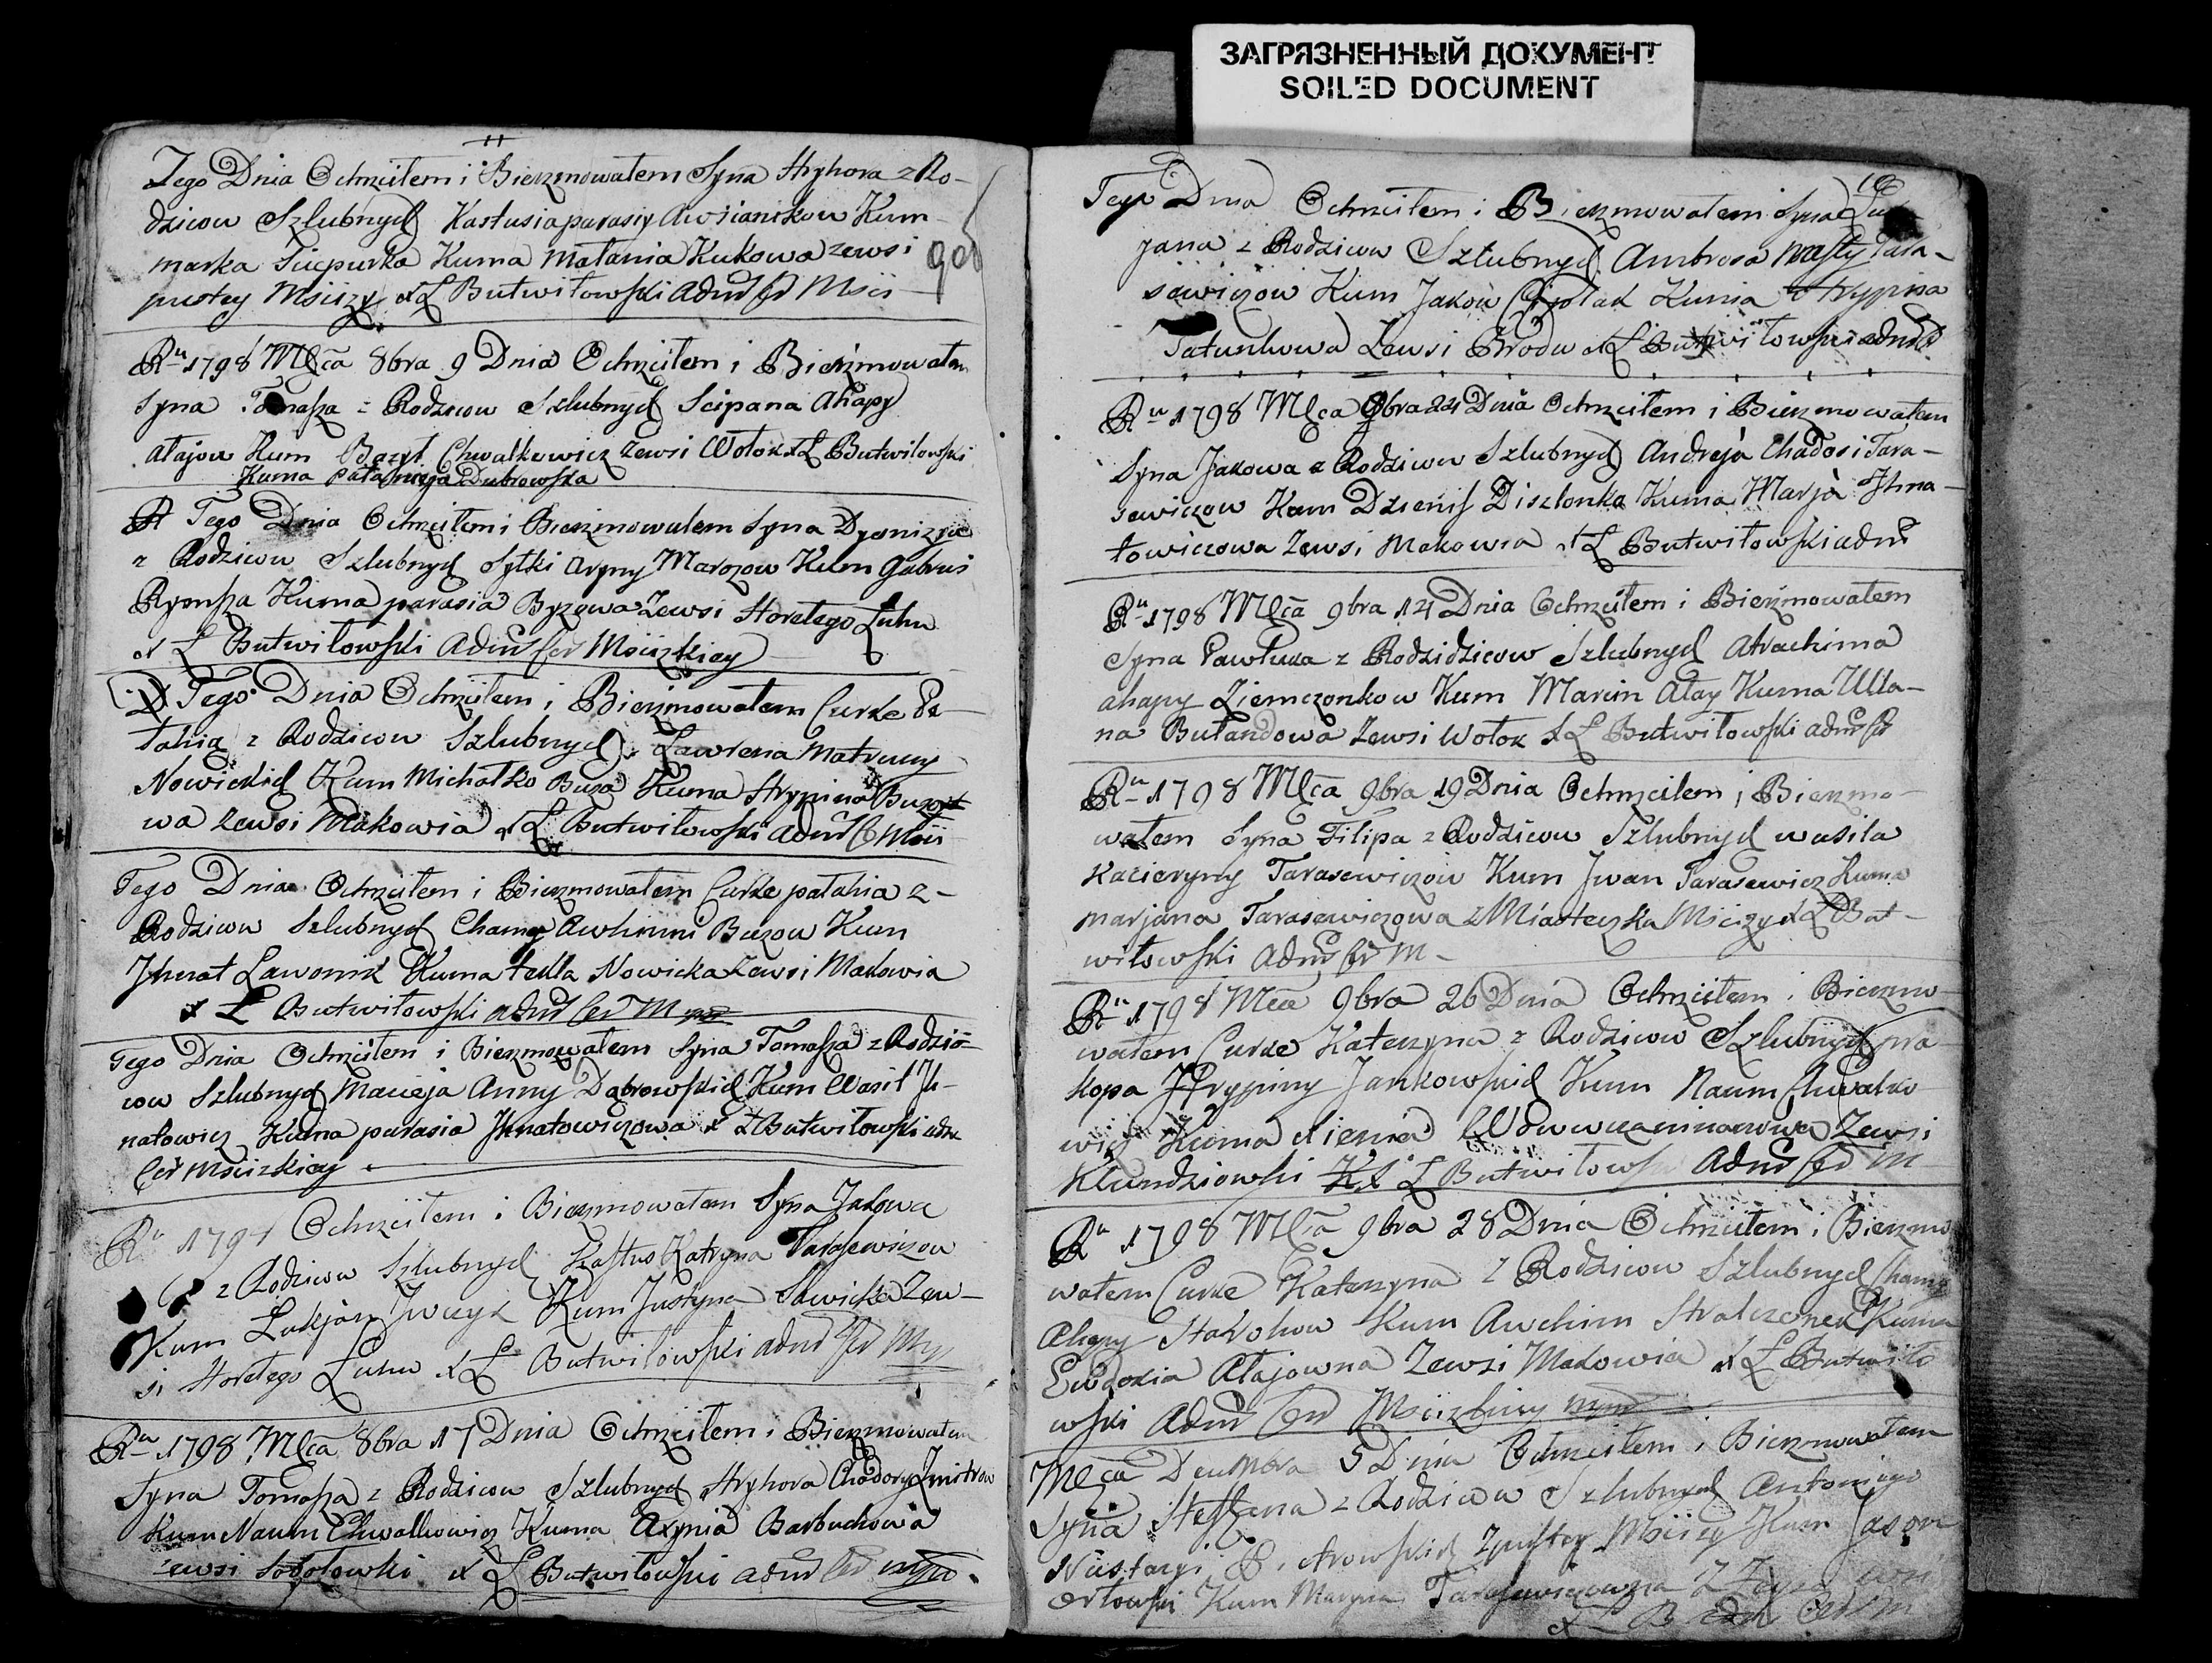 ЗАГРЯЗНЕННЫЙ ДОКУМЕНТ
SOILED DOCUMENT
Tego Dnia Ochrzciłem i Bierzmowałem Syna Hryhora z Ro-
dzicow Szlubnych Kastusia parasiy Awsianikow Kum
marka Kuma Matania Kukowa zewsi
pustey Msciży X Ł Butwiłowski Admr Cer Mści
908
Ru 1798 Mca 8bra 9 Dnia Ochrzciłem i Bierzmowałem
Syna Tomasza z Rodzicow Szlubnych Scipana Ahapy
Atajow Kum Bazyl Chwalkowicz zewsi Wołok X Ł Butwiłowski
Kuma Dubrowska
Tego Dnia Ochrzciłem i Bierzmowałem Syna Dyonizja
z Rodzicow Szlubnych Sytki Aryny Marozow Kum Gabrus
Kuma parasia Byzowa Zewsi Horełego Łuhu
X Ł Butwiłowski Admr Cer Mścizkiey
Tego Dnia Ochrzciłem i Bierzmowałem Curke Pa-
łahią z Rodzicow Szlubnych Ławrena Matruny
Nowickich Kum Michałko Buza Kuma Hrypina Buzo
wa zewsi Makowia X Ł Butwiłowski Admr C Mści
Tego Dnia Ochrzciłem i Bierzmowałem Curke pałahia z
Rodzicow Szlubnych Chamy Awhinni Buzow Kum
Jhnat Ławonik Kuma tekla Nowicka Zewsi Makowia
X Ł Butwiłowski admr Cer M
Tego Dnia Ochrzciłem i Bierzmowałem Syna Tomasza z Rodzi-
cow Szlubnych Macieja Anny Dąbrowskich Kum Wasil Jh-
natowicz Kuma parasia Jhnatowiczowa X Ł Butwiłowski adm
Cer Mścizkiey
Ru 179 Ochrzciłem i Bierzmowałem Syna Jakowa
z Rodzicow Szlubnych Kastus Katryna Tarasewiczow
Kum Łukjan Jwczyk Kum Justyna Sawicka Zew-
si Horełego Łuhu X Ł Butwiłowski admr Cer
Ru 1798 Mca 8bra 17 Dnia Ochrzciłem i Bierzmowałem
Syna Tomasza z Rodzicow Szlubnych Hryhora Chadory
Kum Naum Chwalkowicz Kuma Axynia Barbuchowa
zewsi Sobołowki X Ł Butwiłowski admr Cer
10
Tego Dnia Ochrzciłem i Bierzmowałem Syna
jana z Rodzicow Szlubnych Ambrosa Nasty Tara-
sewiczow Kum Jakow Kuma Hrypina
Tatunkowa Zewsi Brodu X Ł Butwiłowski admr
Ru 1798 Mca 9bra 24 Dnia Ochrzciłem i Bierzmowałem
Syna Jakowa z Rodzicow Szlubnych Andreja Chadosi Tara-
sewiczow Kum Dzienis Diszlonka Kuma Marja Jhna-
towiczowa Zewsi Makowia X Ł Butwiłowski admr
Ru 1798 Mca 9bra 14 Dnia Ochrzciłem i Bierzmowałem
Syna Pawluka z Rodzidzicow Szlubnych Atrachima
ahapy Ziemczonkow Kum Marcin Atay Kuma Ulla-
na Butandowa Zewsi Wołok X Ł Butwiłowski admr Cer
Ru 1798 Mca 9bra 19 Dnia Ochrzciłem i Bierzmo-
wałem Syna Filipa z Rodzicow Szlubnych wasila
Kacieryny Tarasewiczow Kum Jwan Tarasewicz Kuma
marjana Tarasewiczowa z Miasteczka Msciży X Ł But-
wiłowski Admr Cer M
Ru 1798 Mca 9bra 26 Dnia Ochrzciłem i Bierzmo-
wałem Curke Katerzyna z Rodzicow Szlubnych pra-
kopa Hrypiny Jankowskich Kum Naum Chwalko
wicz Kuma Zewsi
Klundziowki X Ł Butwiłowski Admr Cer M
Ru 1798 Mca 9bra 28 Dnia Ochrzciłem i Bierzmo
wałem Curke Katerzyna z Rodzicow Szlubnych Chamy
Ahapy Kum Awchim Kuma
Ewdokia Atajowna Zewsi Makowia X Ł Butwiło
wski Admr Cer
Mca Decembra 5 Dnia Ochrzciłem i Bierzmowałem
Syna Steffana z Rodzicow Szlubnych Antoniego
Nastazyi Zpustey Msciży Kum Jason
Orłowski Kum Maryna Tarasewiczowna z Teyże wsi
X Ł B Adm Cer M